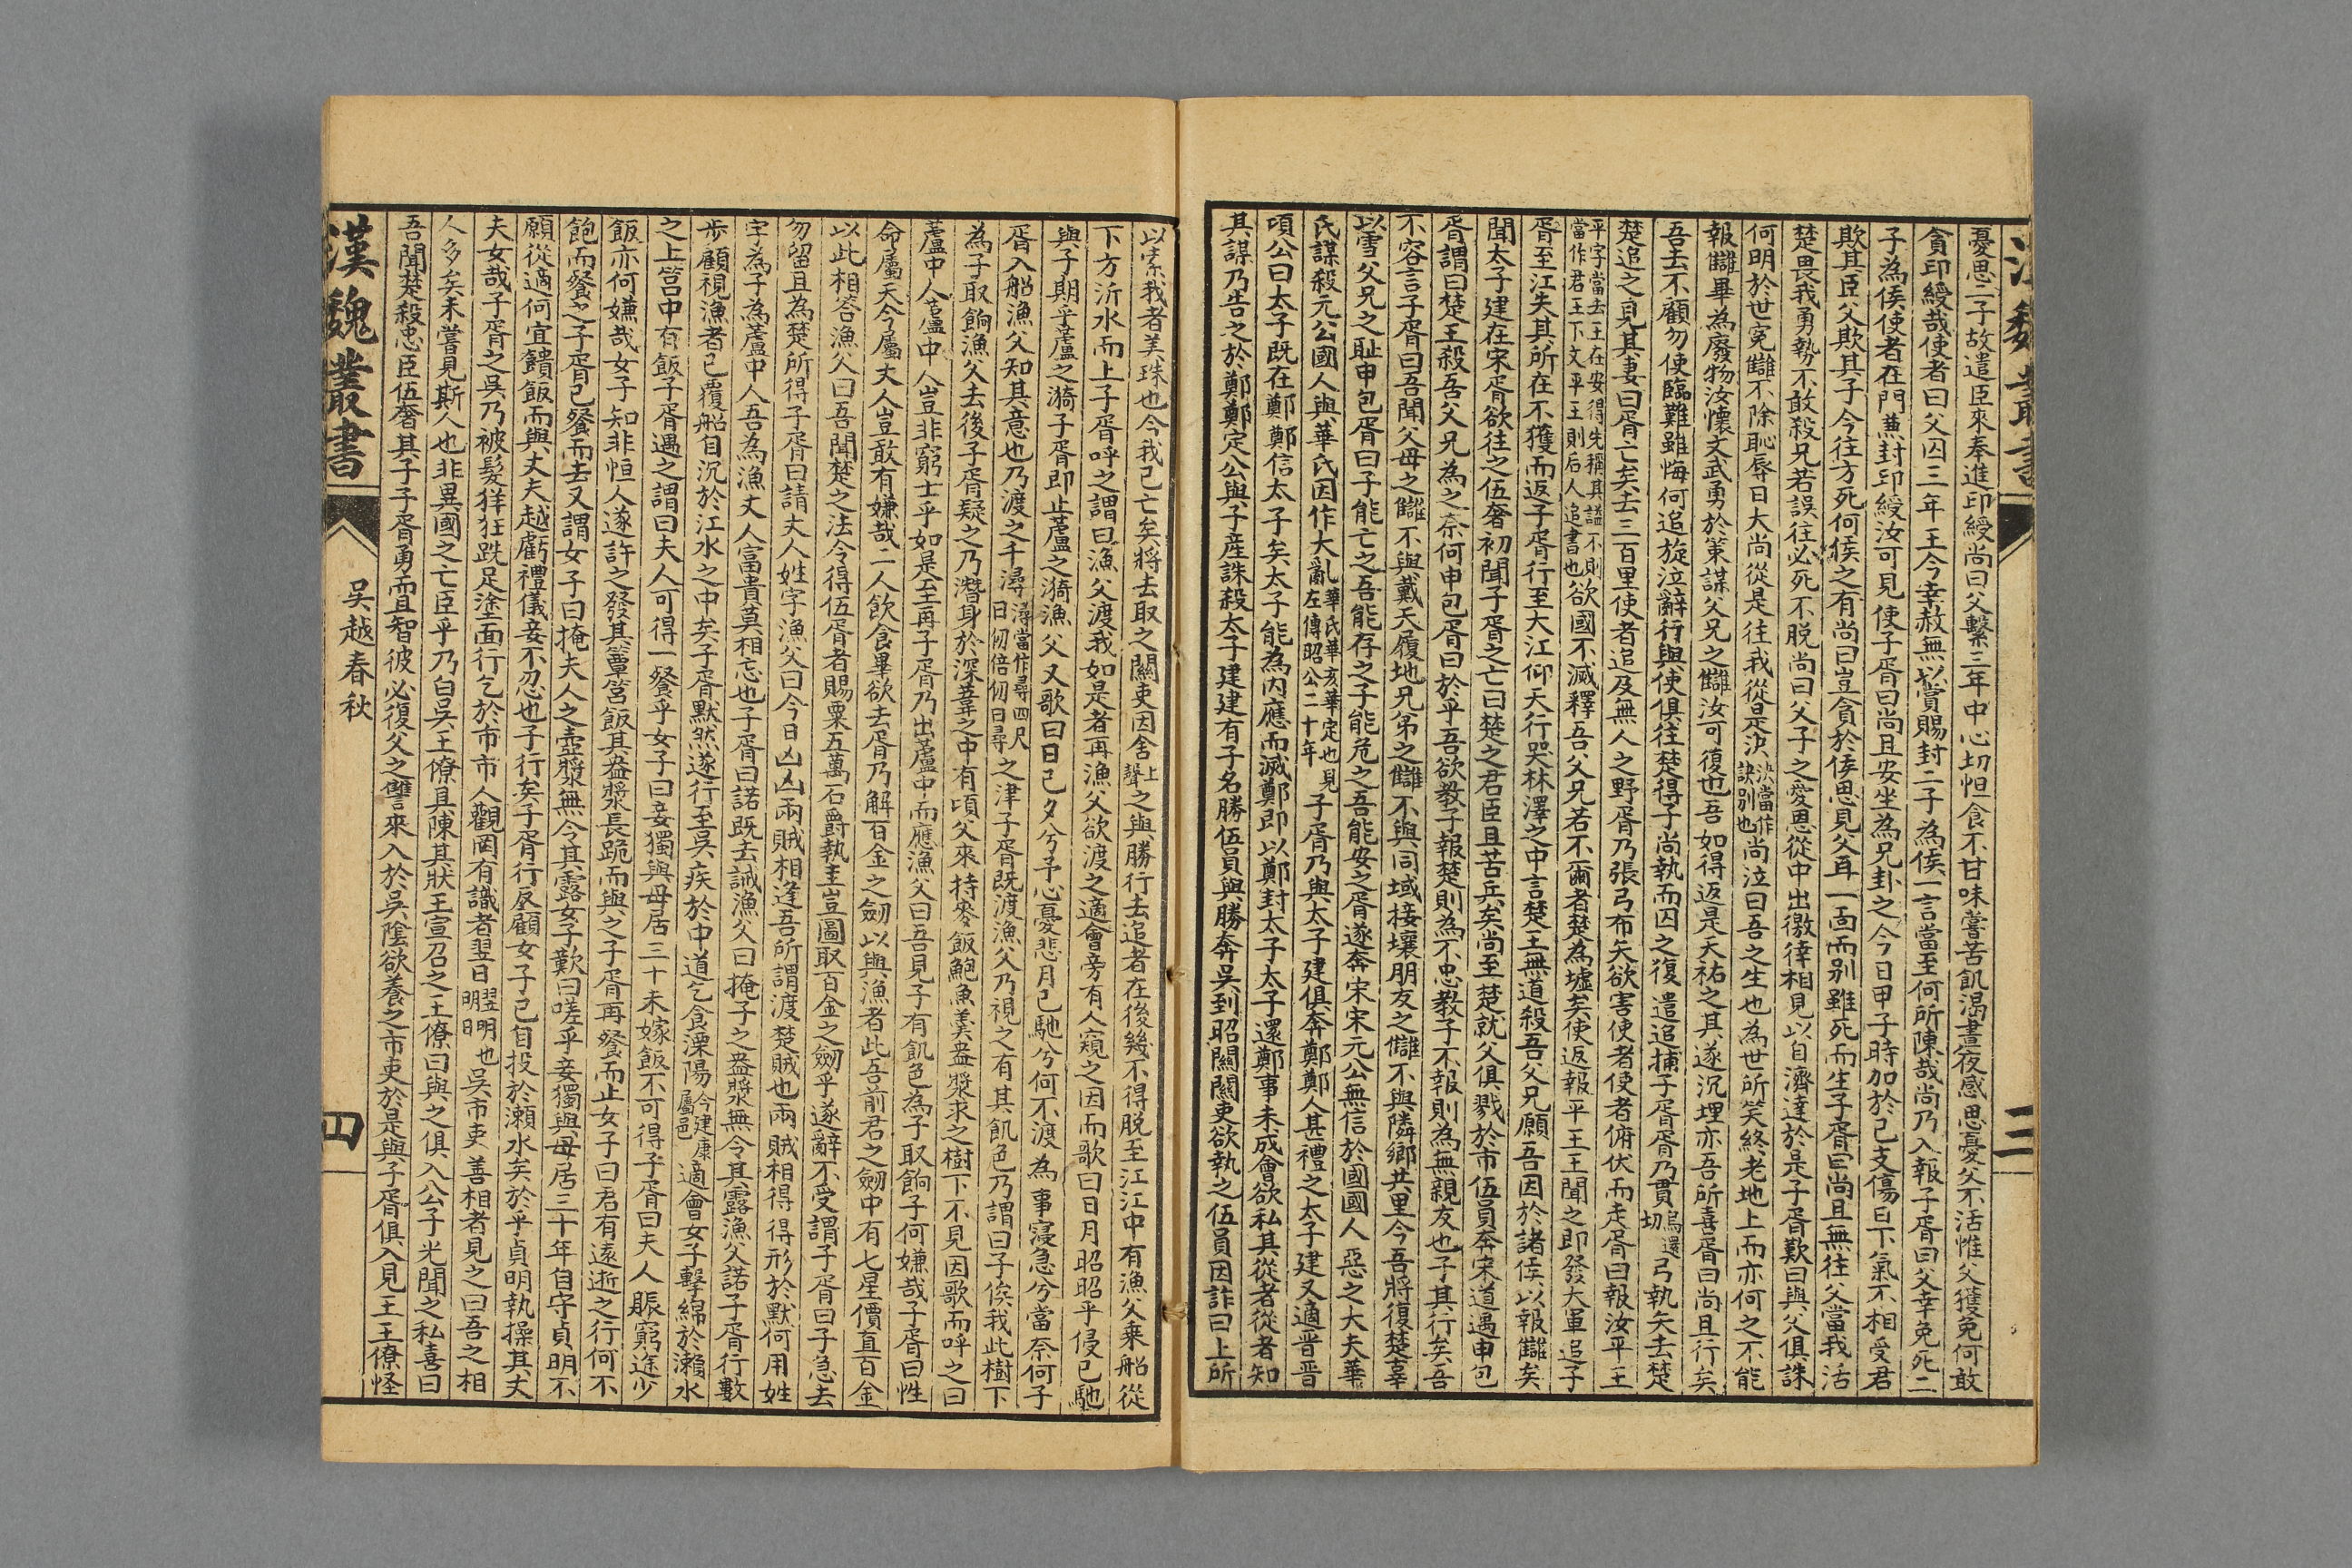 憂思二子故遣臣來奉進印綬尚曰父繫三年中心切怛食不甘味嘗苦飢渴晝夜感思憂父不活惟父獲免何敢
貪印綬哉使者曰父囚三年王今幸赦無以賞賜封二子為侯一言當至何所陳哉尚乃入報子胥曰父幸免死二
子為侯使者在門蕙封印綬汝可見使子胥曰尚且安坐為兄卦之今日甲子時加於巳支傷日下氣不相受君
欺其臣父欺其子今往方死何侯之有尚曰豈貪於侯思見父耳一面而別雖死而生子胥曰尚且無往父當我活
楚畏我勇勢不敢殺兄若誤往必死不脱尚曰父子之愛恩從中出徼倖相見以自濟達於是子胥歎曰與父俱誅
何明於世寃讎不除恥辱日大尚從是往我從是決決當作訣別也尚泣曰吾之生也為世所笑終老地上而亦何之不能
報讎畢為廢物汝懷文武勇於策謀父兄之讎汝可復也吾如得返是天祐之其遂沉埋亦吾所喜胥曰尚且行矣
吾去不顧勿使臨難雖悔何追旋泣辭行與使俱往楚得子尚執而囚之復遣追捕子胥胥乃貫烏還切弓執矢去楚
楚追之見其妻曰胥亡矣去三百里使者追及無人之野胥乃張弓布矢欲害使者使者俯伏而走胥曰報汝平王
平字當去王在安得先稱其謚不則當作君王下文平王則后人追書也欲國不滅釋吾父兄若不爾者楚為墟矣使返報平王王聞之即發大軍追子
胥至江失其所在不獲而返子胥行至大江仰天行哭林澤之中言楚王無道殺吾父兄願吾因於諸侯以報讎矣
聞太子建在宋胥欲往之伍奢初聞子胥之亡曰楚之君臣且苦兵矣尚至楚就父俱戮於市伍員奔宋道遇申包
胥謂曰楚王殺吾父兄為之奈何申包胥曰於乎吾欲教子報楚則為不忠教子不報則為無親友也子其行矣吾
不容言子胥曰吾聞父母之讎不與戴天履地兄弟之讎不與同域接壤朋友之讎不與隣鄉共里今吾將復楚辜
以雪父兄之耻申包胥曰子能亡之吾能存之子能危之吾能安之胥遂奔宋宋元公無信於國國人惡之大夫華
氏謀殺元公國人與華氏因作大亂華氏華亥華定也見左傳昭公二十年子胥乃與太子建俱奔鄭鄭人甚禮之太子建又適晋晋
頃公曰太子既在鄭鄭信太子矣太子能為内應而滅鄭即以鄭封太子太子還鄭事未成會欲私其從者從者知
其謀乃告之於鄭鄭定公與子産誅殺太子建建有子名勝伍員與勝奔吳到昭關關吏欲執之伍員因詐曰上所
以索我者美珠也今我已亡矣將去取之關吏因舍上聲之與勝行去追者在後幾不得脱至江江中有漁父乘船從
下方泝水而上子胥呼之謂曰漁父渡我如是者再漁父欲渡之適會旁有人窺之因而歌曰日月昭昭乎侵已馳
與子期乎蘆之漪子胥即止蘆之漪漁父又歌曰日已夕兮予心憂悲月已馳兮何不渡為事寖急兮當奈何子
胥入船漁父知其意也乃渡之千潯潯當作尋四尺曰仞倍仞曰尋之津子胥既渡漁父乃視之有其飢色乃謂曰子俟我此樹下
為子取餉漁父去後子胥疑之乃潛身於深葦之中有頃父來持麥飯鮑魚羹盎漿求之樹下不見因歌而呼之曰
蘆中人蘆中人豈非窮士乎如是至再子胥乃出蘆中而應漁父曰吾見子有飢色為子取餉子何嫌哉子胥曰性
命屬天今屬丈人豈敢有嫌哉二人飲食畢欲去胥乃解百金之劒以與漁者此吾前君之劒中有七星價直百金
以此相答漁父曰吾聞楚之法令得伍胥者賜粟五萬石爵執圭豈圖取百金之劒乎遂辭不受謂子胥曰子急去
勿留且為楚所得子胥曰請丈人姓字漁父曰今日凶凶兩賊相逢吾所謂渡楚賊也兩賊相得得形於默何用姓
字為子為蘆中人吾為漁丈人富貴莫相忘也子胥曰諾既去誡漁父曰掩子之盎漿無令其露漁父諾子胥行數
步顧視漁者已覆船自沉於江水之中矣子胥默然遂行至吳疾於中道乞食溧陽今建康屬邑適會女子擊綿於瀨水
之上筥中有飯子胥遇之謂曰夫人可得一餐乎女子曰妾獨與母居三十未嫁飯不可得子胥曰夫人賑窮途少
飯亦何嫌哉女子知非恒人遂許之發其簞筥飯其盎漿長跪而與之子胥再餐而止女子曰君有遠逝之行何不
飽而餐之子胥已餐而去又謂女子曰掩夫人之壺漿無令其露女子歎曰嗟乎妾獨與母居三十年自守貞明不
願從適何宜饋飯而與丈夫越虧禮儀妾不忍也子行矣子胥行反顧女子已自投於瀨水矣於乎貞明執操其丈
夫女哉子胥之吳乃被髮佯狂跣足塗面行乞於市市人觀罔有識者翌日翌明也明日吳市吏善相者見之曰吾之相
人多矣未嘗見斯人也非異國之亡臣乎乃白吳王僚具陳其狀王宣召之王僚曰與之俱入公子光聞之私喜曰
吾聞楚殺忠臣伍奢其子子胥勇而且智彼必復父之讐來入於吳陰欲養之市吏於是與子胥俱入見王王僚怪
漢魏叢書
吳越春秋
四
三